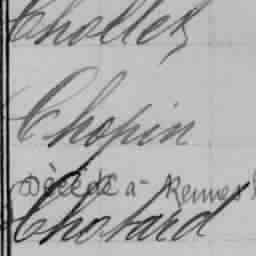 Chollet
Chopin
Décédé à Rennes
Chotard